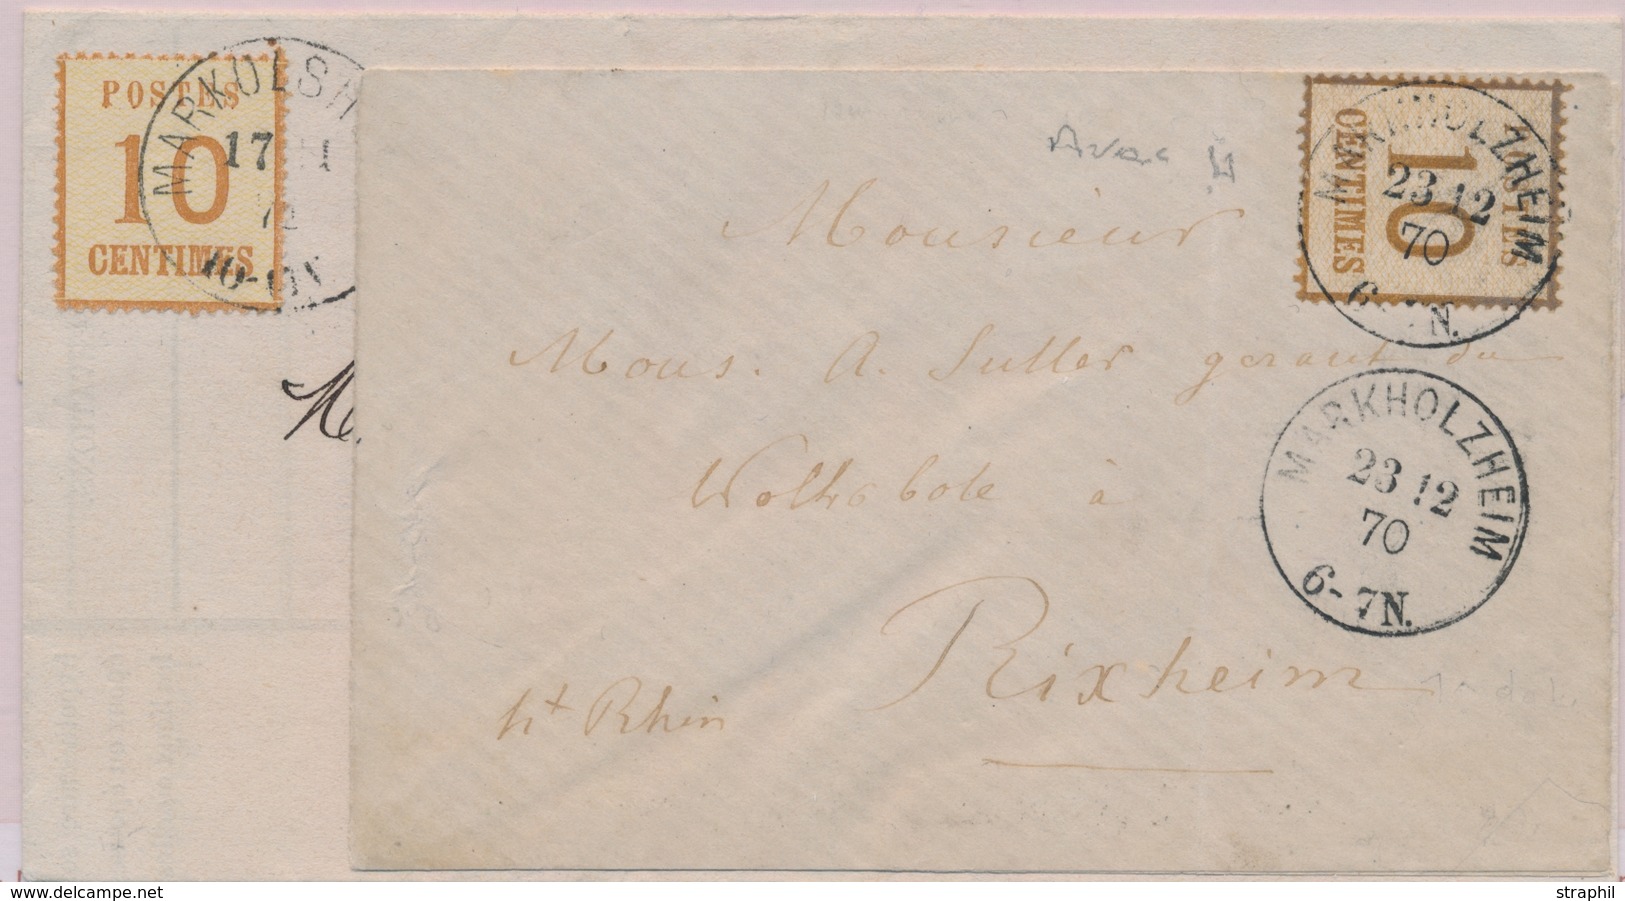 POSTES
10
CENTIMES
MARKOLSH
17
72
10-
POSTES
10
CENTIMES
MARKHOLZHEIM
23 12
70
6-7N.
Monsieur
Mons. A. Sutter gerant du
Volksbote à
Rixheim
ht Rhin
MARKHOLZHEIM
23 12
70
6-7N.
www.delcampe.net
straphil